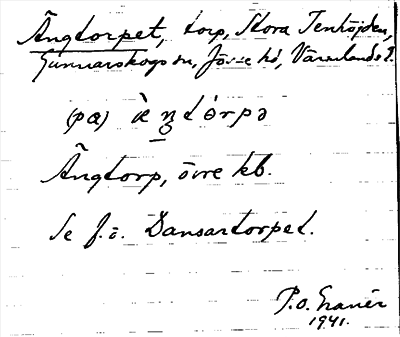 Ängtorpet, torp, Stora Tenhöjden,
Gunnarskogs sn, Jösse hd, Värmlands l.
(pa) 
Ängtorp, övre kb.
Se f.ö. Dansartorpet.
P.O. Granér
1941.